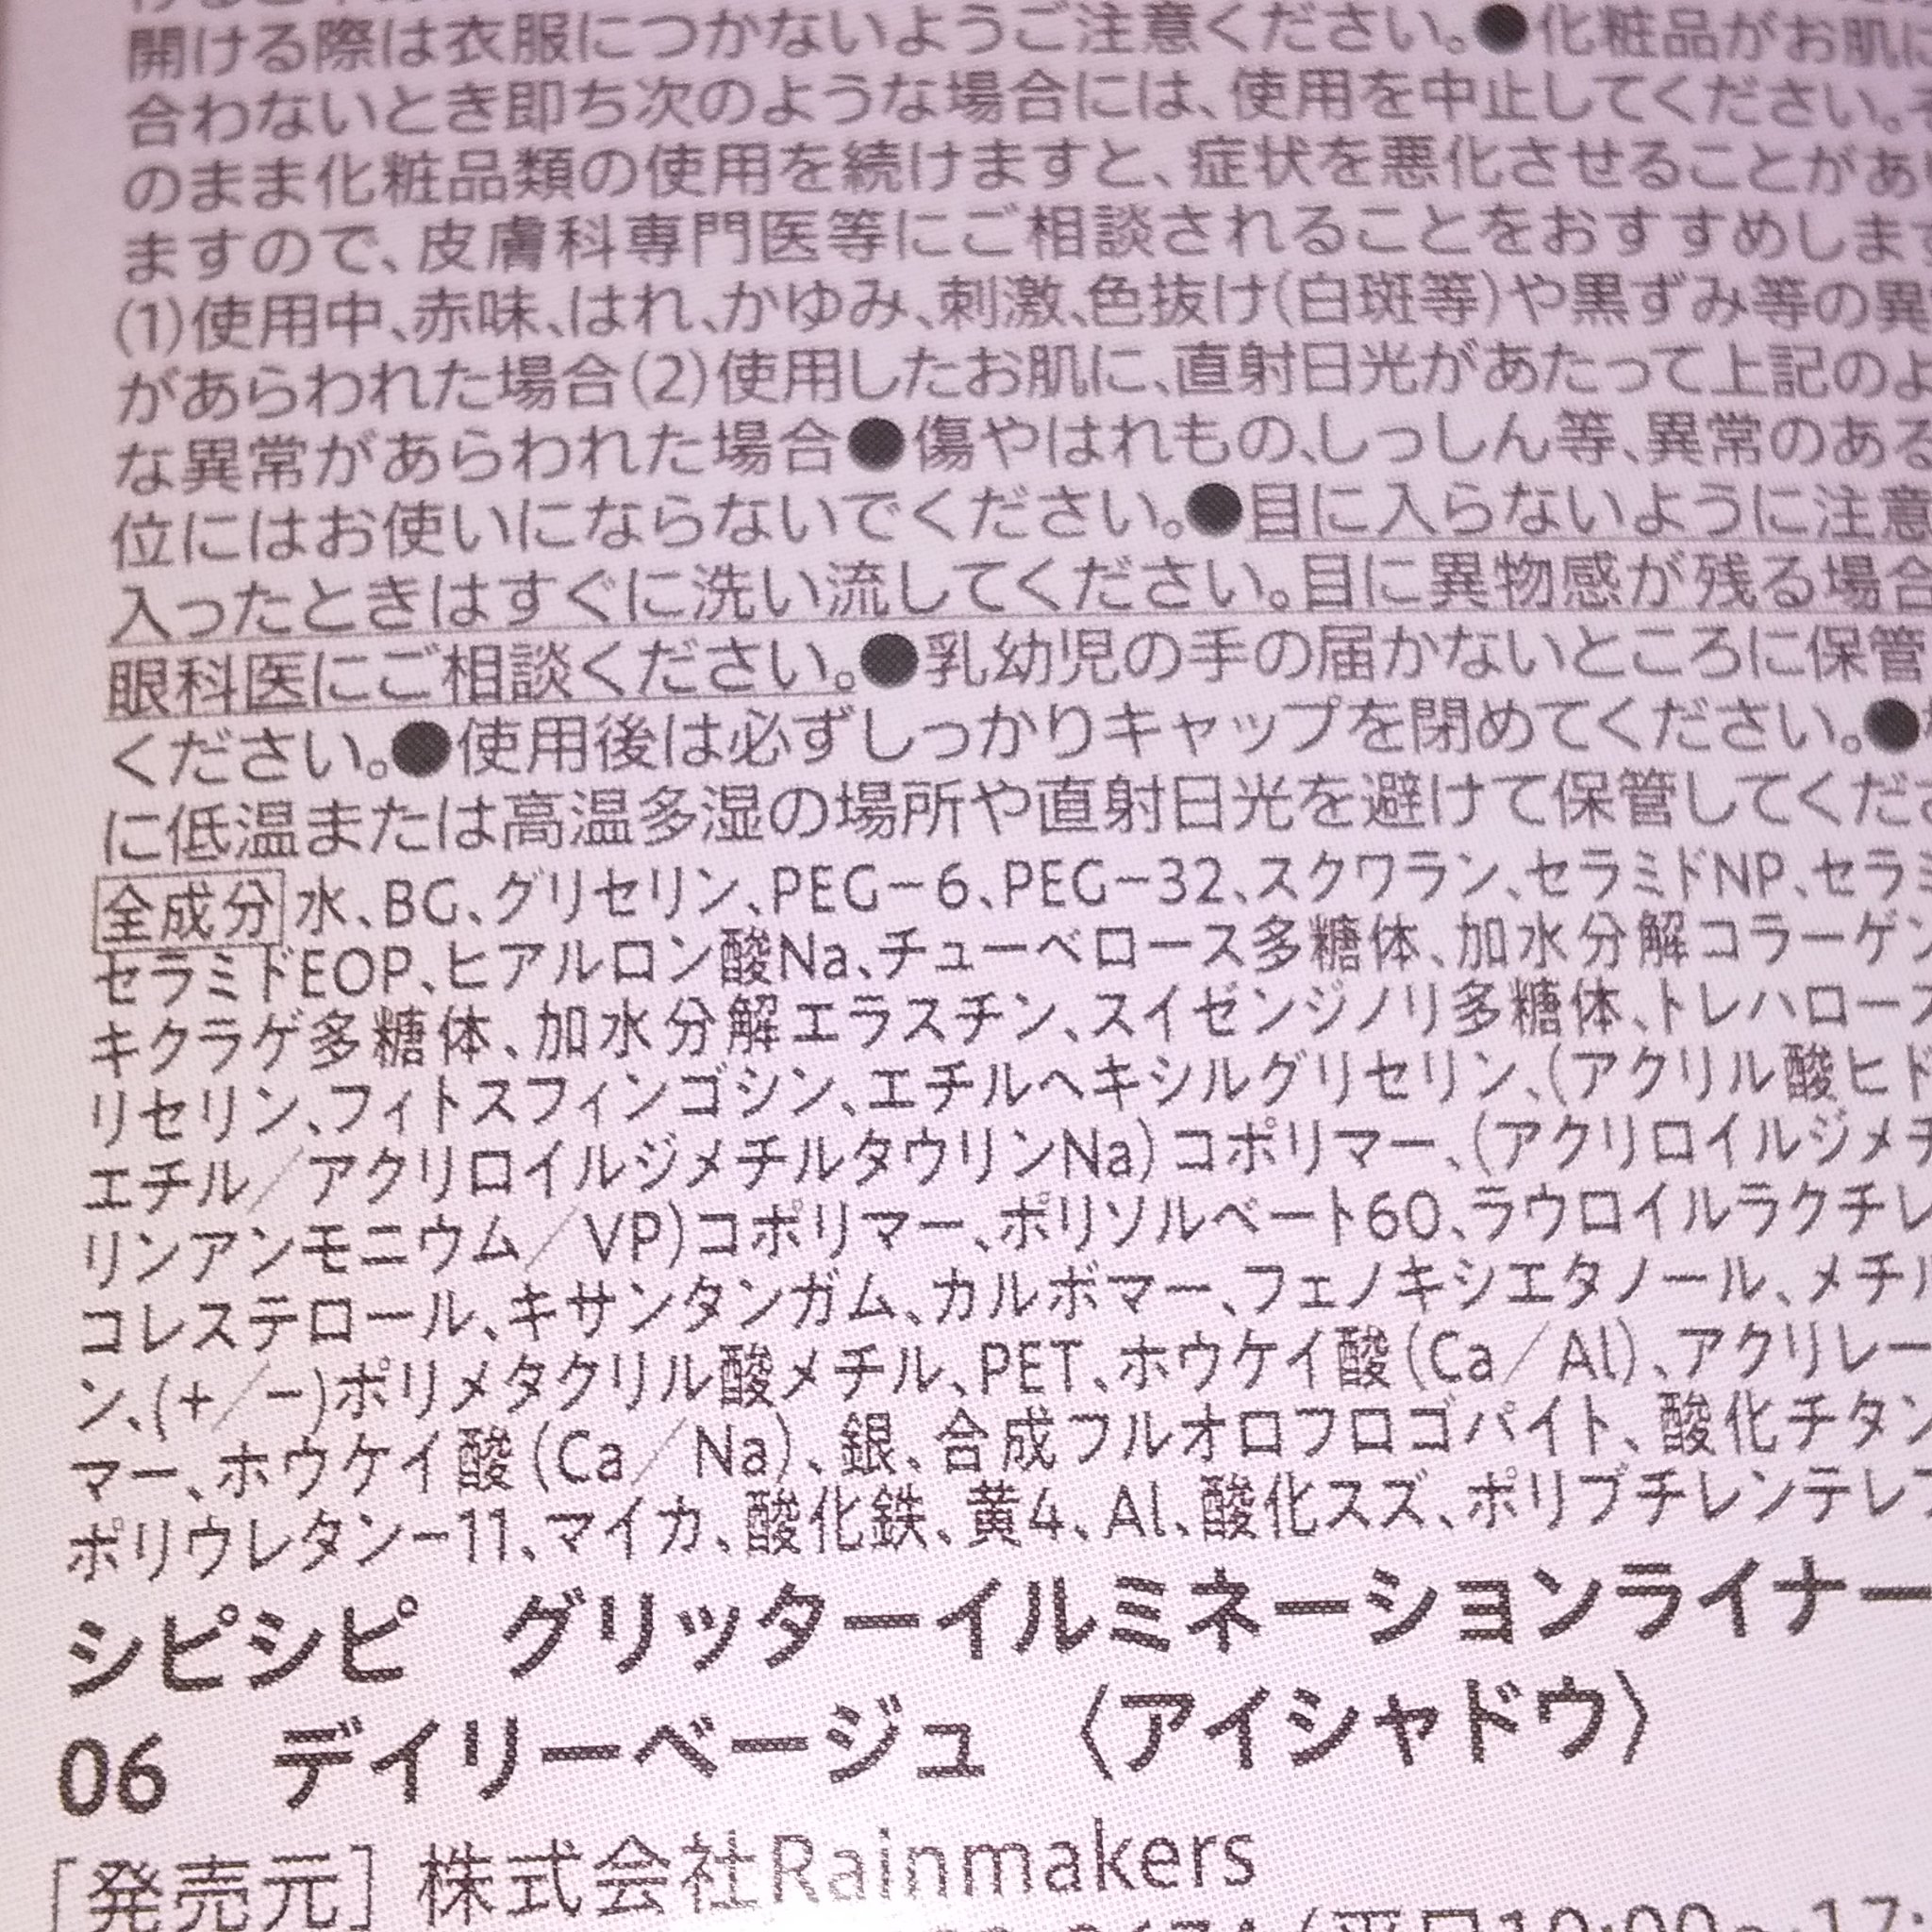 開ける際は衣服につかないようご注意ください。●化粧品がお肌に
合わないとき即ち次のような場合には、使用を中止してください。
のまま化粧品類の使用を続けますと、症状を悪化させることがあり
ますので、皮膚科専門医等にご相談されることをおすすめします
(1)使用中、赤味、はれ、かゆみ、刺激、色抜け(白斑等)や黒ずみ等の異
があらわれた場合(2)使用したお肌に、直射日光があたって上記のよ
な異常があらわれた場合●傷やはれもの、しっしん等、異常のある
位にはお使いにならないでください。●目に入らないように注意
入ったときはすぐに洗い流してください。目に異物感が残る場合
眼科医にご相談ください。●乳幼児の手の届かないところに保管
ください。●使用後は必ずしっかりキャップを閉めてください。●
に低温または高温多湿の場所や直射日光を避けて保管してくださ
全成分 水、BG、グリセリン、PEG−6、PEG−32、スクワラン、セラミドNP、セラミ
セラミドEOP、ヒアルロン酸Na、チューベロース多糖体、加水分解コラーゲン
キクラゲ多糖体、加水分解エラスチン、スイゼンジノリ多糖体、トレハロース
リセリン、フィトスフィンゴシン、エチルヘキシルグリセリン、(アクリル酸ヒド
エチル/アクリロイルジメチルタウリンNa)コポリマー、(アクリロイルジメチ
リンアンモニウム/VP)コポリマー、ポリソルベート60、ラウロイルラクチレ
コレステロール、キサンタンガム、カルボマー、フェノキシエタノール、メチル
ン、(+/−)ポリメタクリル酸メチル、PET、ホウケイ酸(Ca/Al)、アクリレー
マー、ホウケイ酸(Ca/Na)、銀、合成フルオロフロゴパイト、酸化チタン
ポリウレタン−11、マイカ、酸化鉄、黄4、Al、酸化スズ、ポリブチレンテレフ
シピシピ グリッターイルミネーションライナー
06 デイリーベージュ 〈アイシャドウ〉
[発売元] 株式会社Rainmakers